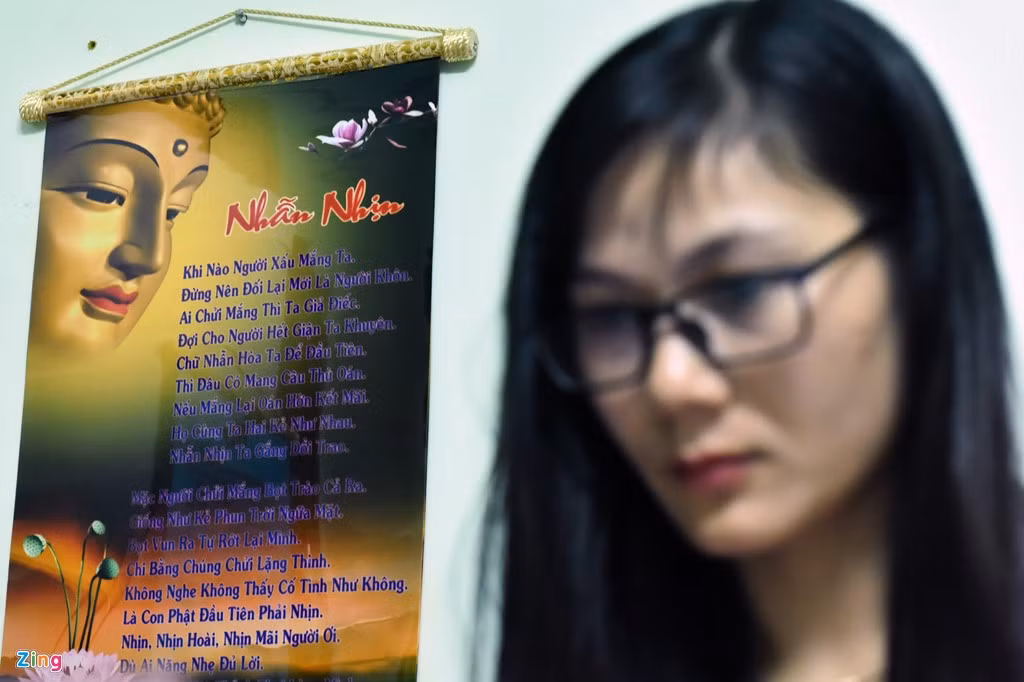 Nhẫn Nhịn
Khi Nào Người Xấu Mắng Ta.
Đừng Nên Đối Lại Mới Là Người Khôn.
Ai Chửi Mắng Thì Ta Giả Điếc.
Đợi Cho Người Hết Giận Ta Khuyên.
Chữ Nhẫn Hòa Ta Để Đầu Tiên.
Thì Đâu Có Mang Câu Thù Oán.
Nếu Mắng Lại Oán Hờn Kết Mãi.
Họ Cùng Ta Hai Kẻ Như Nhau.
Nhẫn Nhịn Ta Gắng Dồi Trao.
Mặc Người Chửi Mắng Bọt Trào Cả Ra.
Giống Như Kẻ Phun Trời Ngửa Mặt.
Bọt Vun Ra Tự Rớt Lại Mình.
Chi Bằng Chúng Chửi Lặng Thinh.
Không Nghe Không Thấy Cố Tình Như Không.
Là Con Phật Đầu Tiên Phải Nhịn.
Nhịn, Nhịn Hoài, Nhịn Mãi Người Ơi.
Dù Ai Nặng Nhẹ Đủ Lời.
Zing